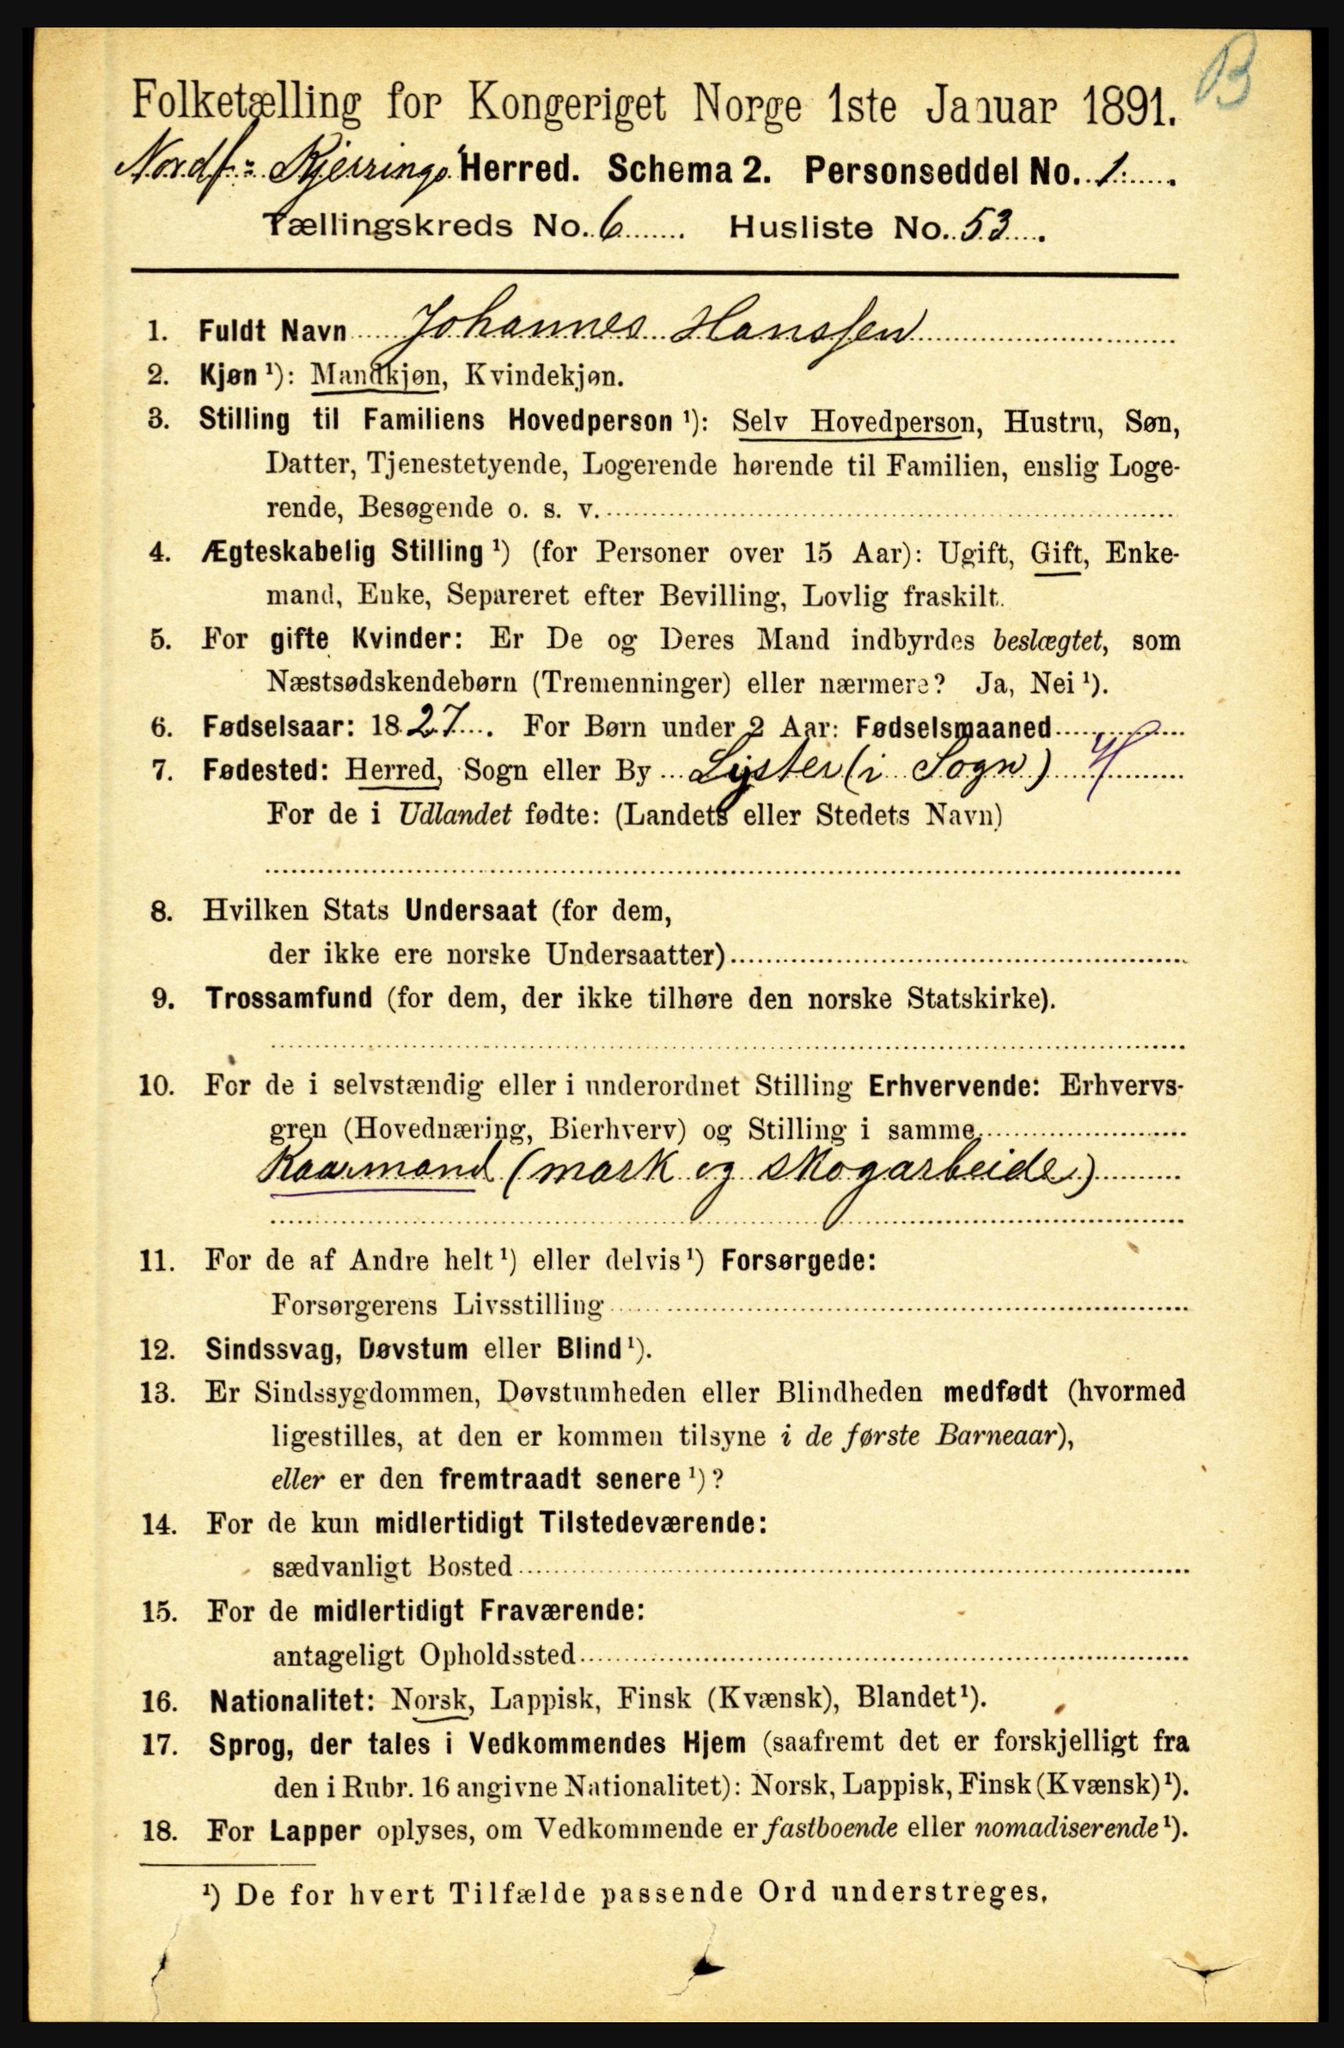 B
Folketælling for Kongeriget Norge 1ste Januar 1891.
Nordf:- Kjerringø Herred. Schema 2. Personseddel No. 1.
Tællingskreds No. 6 Husliste No. 53.
1. Fuldt Navn Johannes Hanssen
2. Kjøn ¹): Mandkjøn, Kvindekjøn.
3. Stilling til Familiens Hovedperson ¹): Selv Hovedperson, Hustru, Søn,
Datter, Tjenestetyende, Logerende hørende til Familien, enslig Loge-
rende, Besøgende o. s. v.
4. Ægteskabelig Stilling ¹) (for Personer over 15 Aar): Ugift, Gift, Enke-
mand, Enke, Separeret efter Bevilling, Lovlig fraskilt.
5. For gifte Kvinder: Er De og Deres Mand indbyrdes beslægtet, som
Næstsødskendebørn (Tremenninger) eller nærmere? Ja, Nei ¹).
6. Fødselsaar: 1827. For Børn under 2 Aar: Fødselsmaaned
7. Fødested: Herred, Sogn eller By Lyster (i Sogn)
For de i Udlandet fødte: (Landets eller Stedets Navn)
8. Hvilken Stats Undersaat (for dem,
der ikke ere norske Undersaatter)
9. Trossamfund (for dem, der ikke tilhøre den norske Statskirke).
10. For de i selvstændig eller i underordnet Stilling Erhvervende: Erhvervs-
gren (Hovednæring, Bierhverv) og Stilling i samme
Kaarmand (mark og skogarbeide)
11. For de af Andre helt ¹) eller delvis ¹) Forsørgede:
Forsørgerens Livsstilling
12. Sindssvag, Døvstum eller Blind ¹).
13. Er Sindssygdommen, Døvstumheden eller Blindheden medfødt (hvormed
ligestilles, at den er kommen tilsyne i de første Barneaar),
eller er den fremtraadt senere ¹)?
14. For de kun midlertidigt Tilstedeværende:
sædvanligt Bosted
15. For de midlertidigt Fraværende:
antageligt Opholdssted
16. Nationalitet: Norsk, Lappisk, Finsk (Kvænsk), Blandet ¹).
17. Sprog, der tales i Vedkommendes Hjem (saafremt det er forskjelligt fra
den i Rubr. 16 angivne Nationalitet): Norsk, Lappisk, Finsk (Kvænsk) ¹).
18. For Lapper oplyses, om Vedkommende er fastboende eller nomadiserende ¹).
¹) De for hvert Tilfælde passende Ord understreges.